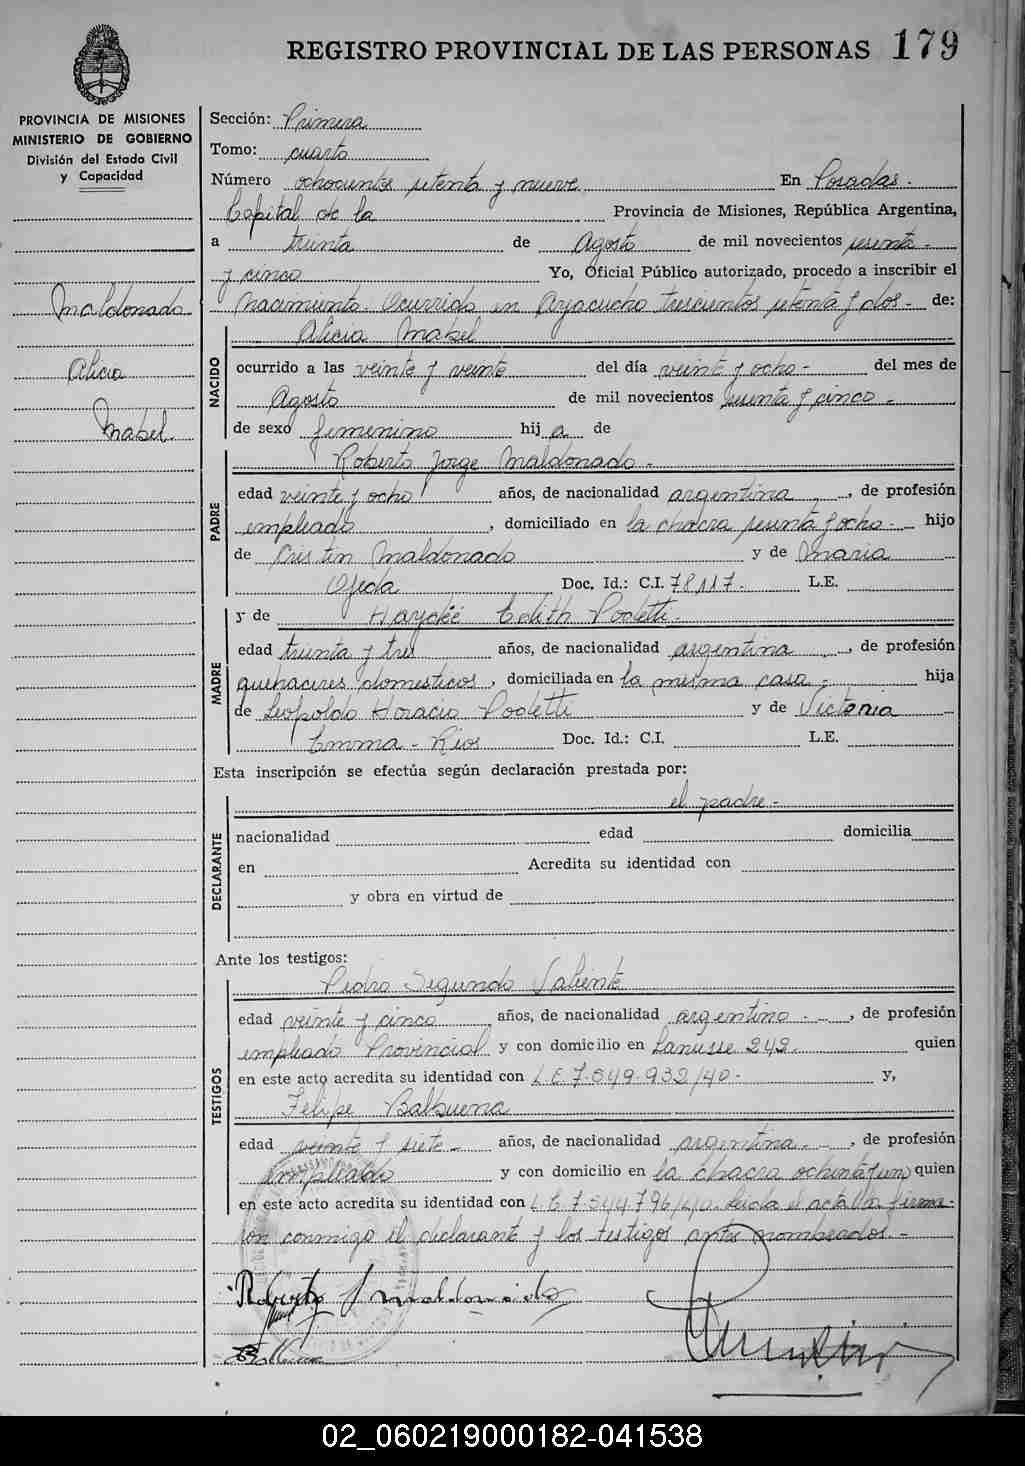 REGISTRO PROVINCIAL DE LAS PERSONAS 179
PROVINCIA DE MISIONES
MINISTERIO DE GOBIERNO
División del Estado Civil
y Capacidad
Maldonado
Alicia
Mabel
Sección: Primera
Tomo: cuarto
Número ochocientos setenta y nueve En Posadas.
Capital de la Provincia de Misiones, República Argentina,
a treinta de Agosto de mil novecientos sesenta
y cinco Yo, Oficial Público autorizado, procedo a inscribir el
nacimiento. Ocurrido en Ayacucho trescientos setenta y dos- de:
NACIDO
Alicia Mabel
ocurrido a las veinte y veinte del día veinte y ocho- del mes de
Agosto de mil novecientos sesenta y cinco-
de sexo femenino hija de
PADRE
Roberto Jorge Maldonado-
edad veinte y ocho años, de nacionalidad argentina, de profesión
empleado, domiciliado en la chacra sesenta y ocho- hijo
de Maldonado y de Maria
Ojeda Doc. Id.: C.I. 78117. L.E.
MADRE
y de Haydée Edith Pooletti.
edad treinta y tres años, de nacionalidad argentina, de profesión
quehaceres domesticos, domiciliada en la misma casa; hija
de Leopoldo Horacio Pooletti y de Victoria
Emma-Rios Doc. Id.: C.I. L.E.
Esta inscripción se efectúa según declaración prestada por:
DECLARANTE
el padre-
nacionalidad edad domicilia
en Acredita su identidad con
y obra en virtud de
Ante los testigos:
TESTIGOS
Pedro Segundo Valiente
edad veinte y cinco años, de nacionalidad argentino, de profesión
empleado Provincial y con domicilio en Lanusse 242. quien
en este acto acredita su identidad con L.E.7.549.932/40- y,
Felipe Balbuena
edad veinte y siete- años, de nacionalidad argentina, de profesión
empleado y con domicilio en la chacra ochenta y un quien
en este acto acredita su identidad con L.E.7.544.796/40. Leida el acta la firma-
ron conmigo el declarante y los testigos antes nombrados.-
Roberto J Maldonado
02_060219000182-041538